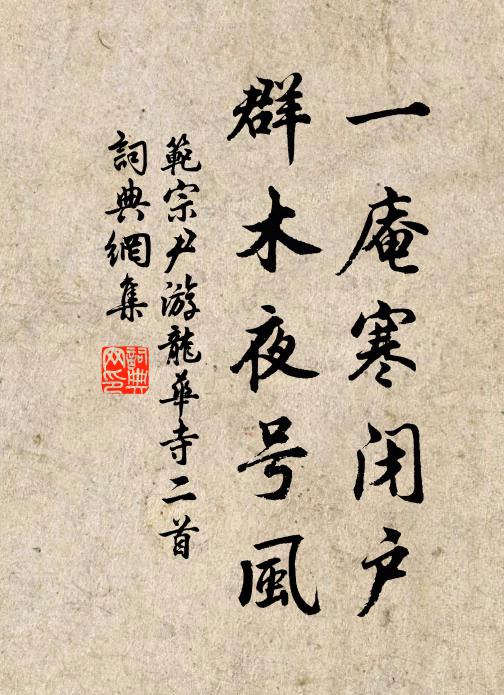 一庵寒闭户
群木夜号風
範宗尹游龍華寺二首
詞典網集
詞典网印